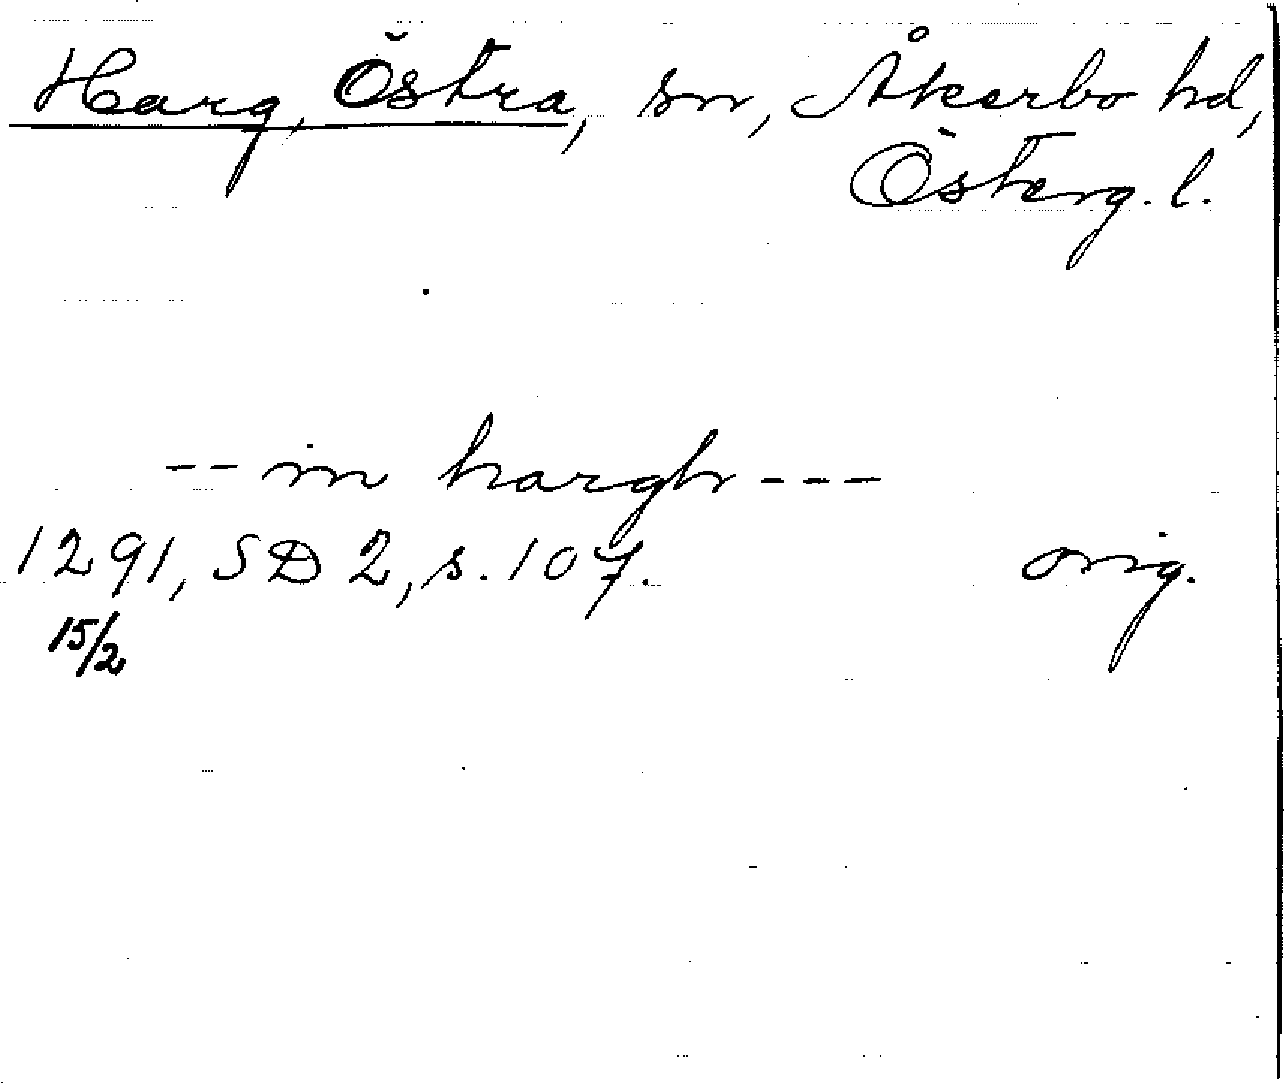 Harg, Östra, sn, Åkerbo hd,
Österg. l.
-- in hargh ---
1291, SD 2, s. 107. orig.
15/2